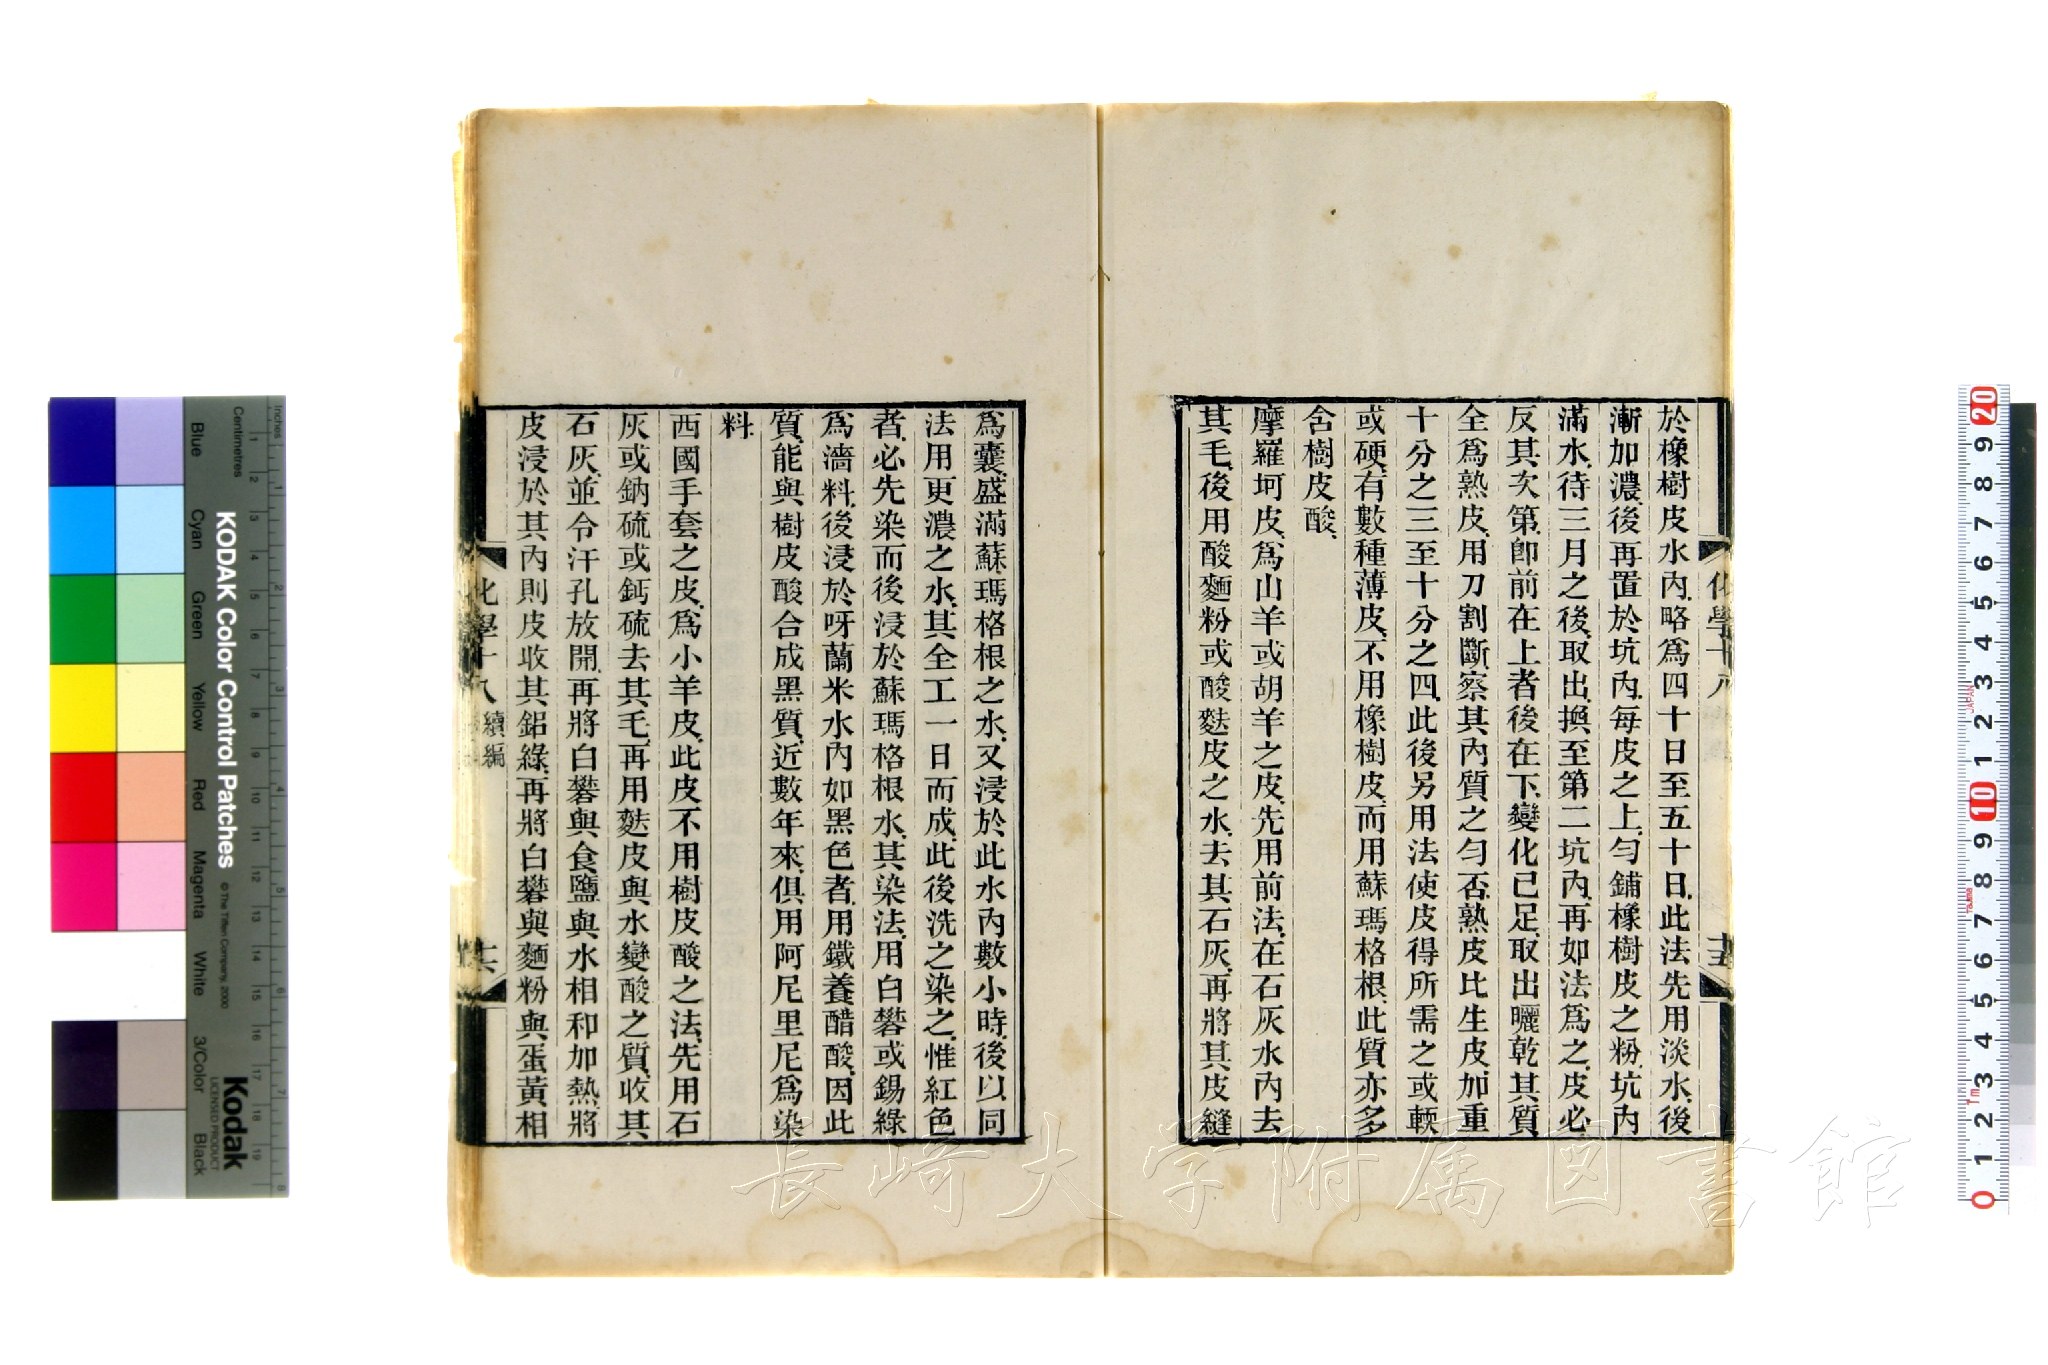 於橡樹皮水內略爲四十日至五十日此法先用淡水後
漸加濃後再置於坑內每皮之上勻鋪橡樹皮之粉坑內
滿水待三月之後取出換至第二坑內再如法爲之皮必
反其次第卽前在上者後在下變化已足取出曬乾其質
全爲熟皮用刀割斷察其內質之勻否熟皮比生皮加重
十分之三至十分之四此後另用法使皮得所需之或輭
或硬有數種薄皮不用橡樹皮而用蘇瑪格根此質亦多
含樹皮酸
摩羅坷皮爲山羊或胡羊之皮先用前法在石灰水內去
其毛後用酸麵粉或酸麩皮之水去其石灰再將其皮縫
化學十八
十五
爲囊盛滿蘇瑪格根之水又浸於此水內數小時後以同
法用更濃之水其全工一日而成此後洗之染之惟紅色
者必先染而後浸於蘇瑪格根水其染法用白礬或錫綠
爲濇料後浸於呀蘭米水內如黑色者用鐵養醋酸因此
質能與樹皮酸合成黑質近數年來俱用阿尼里尼爲染
料
西國手套之皮爲小羊皮此皮不用樹皮酸之法先用石
灰或鈉硫或鈣硫去其毛再用麩皮與水變酸之質收其
石灰並令汗孔放開再將白礬與食鹽與水相和加熱將
皮浸於其內則皮收其鋁綠再將白礬與麵粉與蛋黃相
化學十八 續編
十六
長崎大学附属図書館
KODAK Color Control Patches
© The Tiffen Company, 2000
Kodak
LICENSED PRODUCT
Inches
Centimetres
Blue
Cyan
Green
Yellow
Red
Magenta
White
3/Color
Black
1 2 3 4 5 6 7 8
1 2 3 4 5 6 7 8 9 10 11 12 13 14 15 16 17 18 19
20 9 8 7 6 5 4 3 2 1 10 9 8 7 6 5 4 3 2 1 0
JAPAN